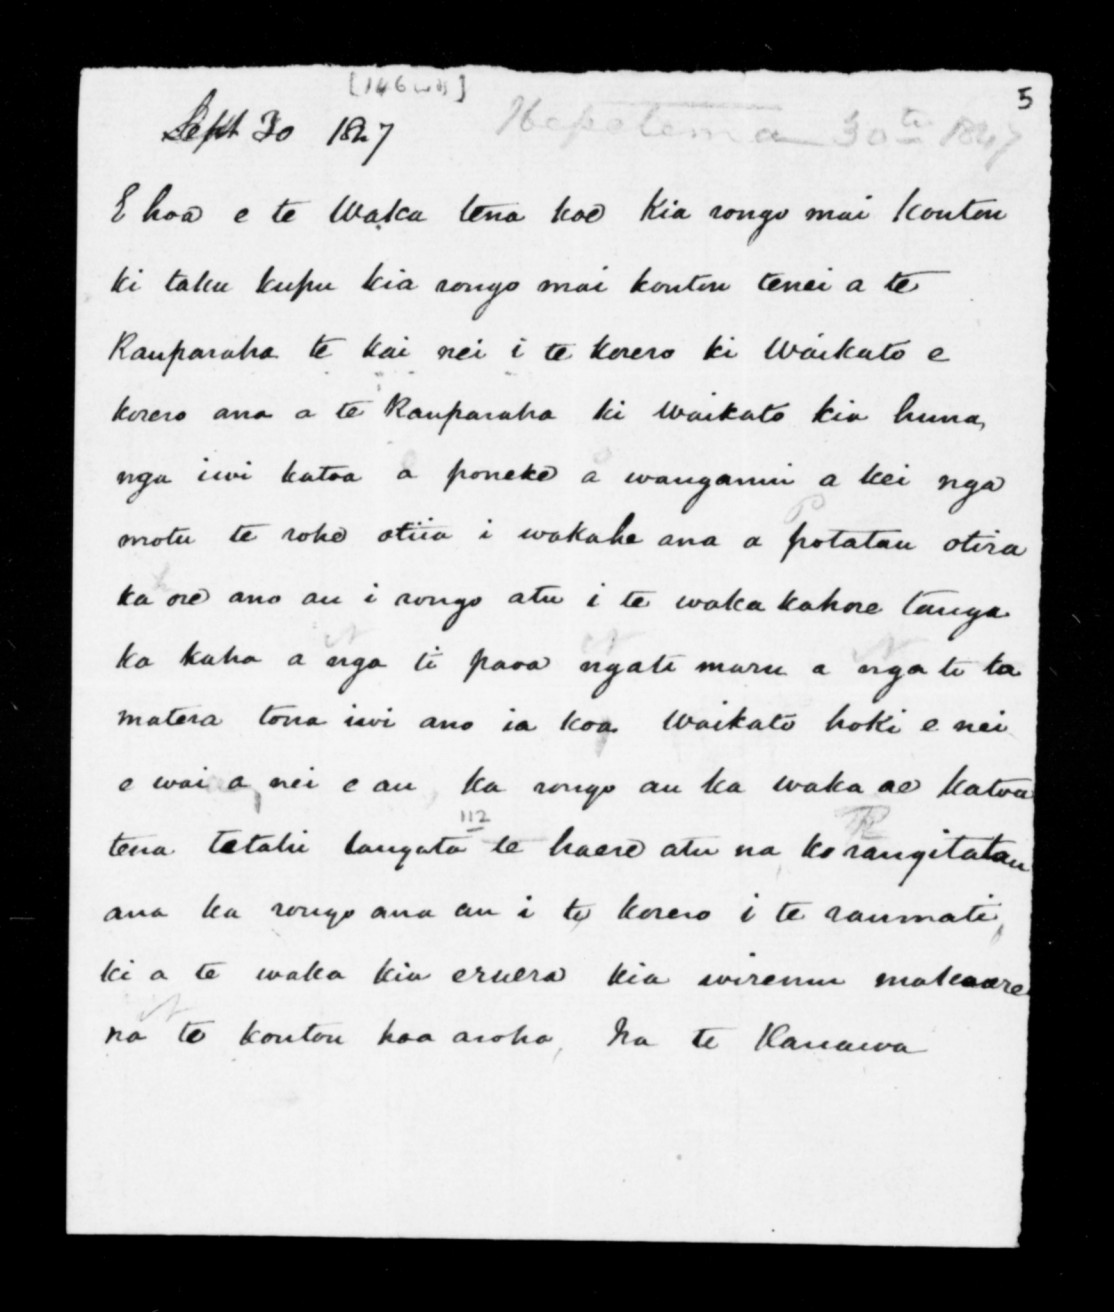 [146 wds]
5
Sept 30 1847
Hepetema 30th 1847
E hoa e te Waka tena koe Kia rongo mai Koutou
ki taku kupu kia rongo mai koutou tenei a te
Rauparaha te kai nei i te korero ki Waikato e
korero ana a te Rauparaha ki Waikato kia huna,
nga iwi katoa a poneke a wanganui a kei nga
motu te rohe otiia i wakahe ana a potatau otira
ka ore ano au i rongo atu i te waka kahore tanga
ka kaha a nga ti paoa ngati maru a nga ti ta
matera tona iwi ano ia koa Waikato hoki e nei
e wai a nei e au ka rongo au ka waka ae katoa
112
tena tetahi tangata te haere atu na ko rangitatau
ana ka rongo ana au i te korero i te raumati,
ki a te waka kia eruera kia wiremu makaore
na te koutou hoa aroha, Na te Kanawa